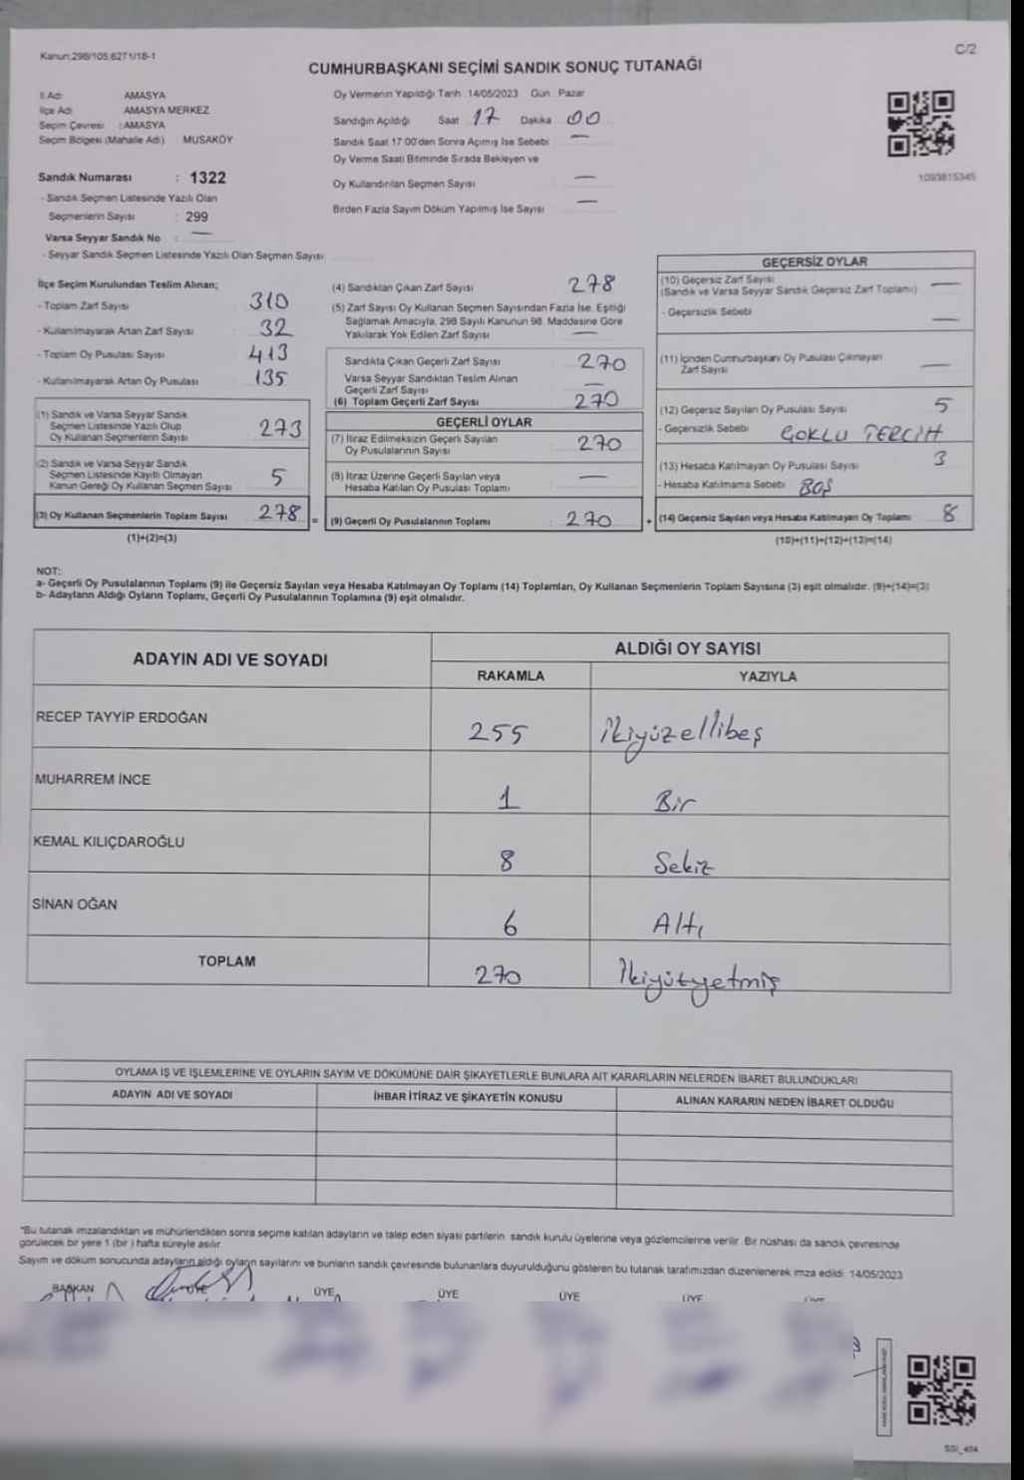 Kanun:298/105,6271/18-1
C/2
CUMHURBAŞKANI SEÇİMİ SANDIK SONUÇ TUTANAĞI
İl Adı AMASYA
İlçe Adı AMASYA MERKEZ
Seçim Çevresi : AMASYA
Seçim Bölgesi (Mahalle Adı) MUSAKÖY
Sandık Numarası : 1322
- Sandık Seçmen Listesinde Yazılı Olan
Seçmenlerin Sayısı : 299
Varsa Seyyar Sandık No : —
- Seyyar Sandık Seçmen Listesinde Yazılı Olan Seçmen Sayısı
Oy Vermenin Yapıldığı Tarih 14/05/2023 Gün Pazar
Sandığın Açıldığı Saat 17 Dakika 00
Sandık Saat 17:00'den Sonra Açımış İse Sebebi —
Oy Verme Saati Bitiminde Sırada Bekleyen ve
Oy Kullandırılan Seçmen Sayısı —
Birden Fazla Sayım Döküm Yapılmış İse Sayısı —
1093815345
İlçe Seçim Kurulundan Teslim Alınan;
- Toplam Zarf Sayısı 310
- Kullanılmayarak Artan Zarf Sayısı 32
- Toplam Oy Pusulası Sayısı 413
- Kullanılmayarak Artan Oy Pusulası 135
(1) Sandık ve Varsa Seyyar Sandık
Seçmen Listesinde Yazılı Olup
Oy Kullanan Seçmenlerin Sayısı 273
(2) Sandık ve Varsa Seyyar Sandık
Seçmen Listesinde Kayıtlı Olmayan
Kanun Gereği Oy Kullanan Seçmen Sayısı 5
(3) Oy Kullanan Seçmenlerin Toplam Sayısı 278 =
(1)+(2)=(3)
(4) Sandıktan Çıkan Zarf Sayısı 278
(5) Zarf Sayısı Oy Kullanan Seçmen Sayısından Fazla İse, Eşitliği
Sağlamak Amacıyla, 298 Sayılı Kanunun 98. Maddesine Göre
Yakılarak Yok Edilen Zarf Sayısı —
Sandıkta Çıkan Geçerli Zarf Sayısı 270
Varsa Seyyar Sandıktan Teslim Alınan
Geçerli Zarf Sayısı —
(6) Toplam Geçerli Zarf Sayısı 270
GEÇERLİ OYLAR
(7) İtiraz Edilmeksizin Geçerli Sayılan
Oy Pusulalarının Sayısı 270
(8) İtiraz Üzerine Geçerli Sayılan veya
Hesaba Katılan Oy Pusulası Toplamı —
(9) Geçerli Oy Pusulalarının Toplamı 270 +
GEÇERSİZ OYLAR
(10) Geçersiz Zarf Sayısı
(Sandık ve Varsa Seyyar Sandık Geçersiz Zarf Toplamı) —
- Geçersizlik Sebebi —
(11) İçinden Cumhurbaşkanı Oy Pusulası Çıkmayan
Zarf Sayısı —
(12) Geçersiz Sayılan Oy Pusulası Sayısı 5
- Geçersizlik Sebebi ÇOKLU TERCİH
(13) Hesaba Katılmayan Oy Pusulası Sayısı 3
- Hesaba Katılmama Sebebi BOŞ
(14) Geçersiz Sayılan veya Hesaba Katılmayan Oy Toplamı 8
(10)+(11)+(12)+(13)=(14)
NOT:
a- Geçerli Oy Pusulalarının Toplamı (9) ile Geçersiz Sayılan veya Hesaba Katılmayan Oy Toplamı (14) Toplamları, Oy Kullanan Seçmenlerin Toplam Sayısına (3) eşit olmalıdır. (9)+(14)=(3)
b- Adayların Aldığı Oyların Toplamı, Geçerli Oy Pusulalarının Toplamına (9) eşit olmalıdır.
ADAYIN ADI VE SOYADI
ALDIĞI OY SAYISI
RAKAMLA YAZIYLA
RECEP TAYYİP ERDOĞAN 255 İkiyüzellibeş
MUHARREM İNCE 1 Bir
KEMAL KILIÇDAROĞLU 8 Sekiz
SİNAN OĞAN 6 Altı
TOPLAM 270 İkiyüzyetmiş
OYLAMA İŞ VE İŞLEMLERİNE VE OYLARIN SAYIM VE DÖKÜMÜNE DAİR ŞİKAYETLERLE BUNLARA AİT KARARLARIN NELERDEN İBARET BULUNDUKLARI
ADAYIN ADI VE SOYADI İHBAR İTİRAZ VE ŞİKAYETİN KONUSU ALINAN KARARIN NEDEN İBARET OLDUĞU
*Bu tutanak imzalandıktan ve mühürlendikten sonra seçime katılan adayların ve talep eden siyasi partilerin sandık kurulu üyelerine veya gözlemcilerine verilir. Bir nüshası da sandık çevresinde
görülecek bir yere 1 (bir) hafta süreyle asılır.
Sayım ve döküm sonucunda adayların aldığı oyların sayılarını ve bunların sandık çevresinde bulunanlara duyurulduğunu gösteren bu tutanak tarafımızdan düzenlenerek imza edildi. 14/05/2023
BAŞKAN ÜYE ÜYE ÜYE ÜYE